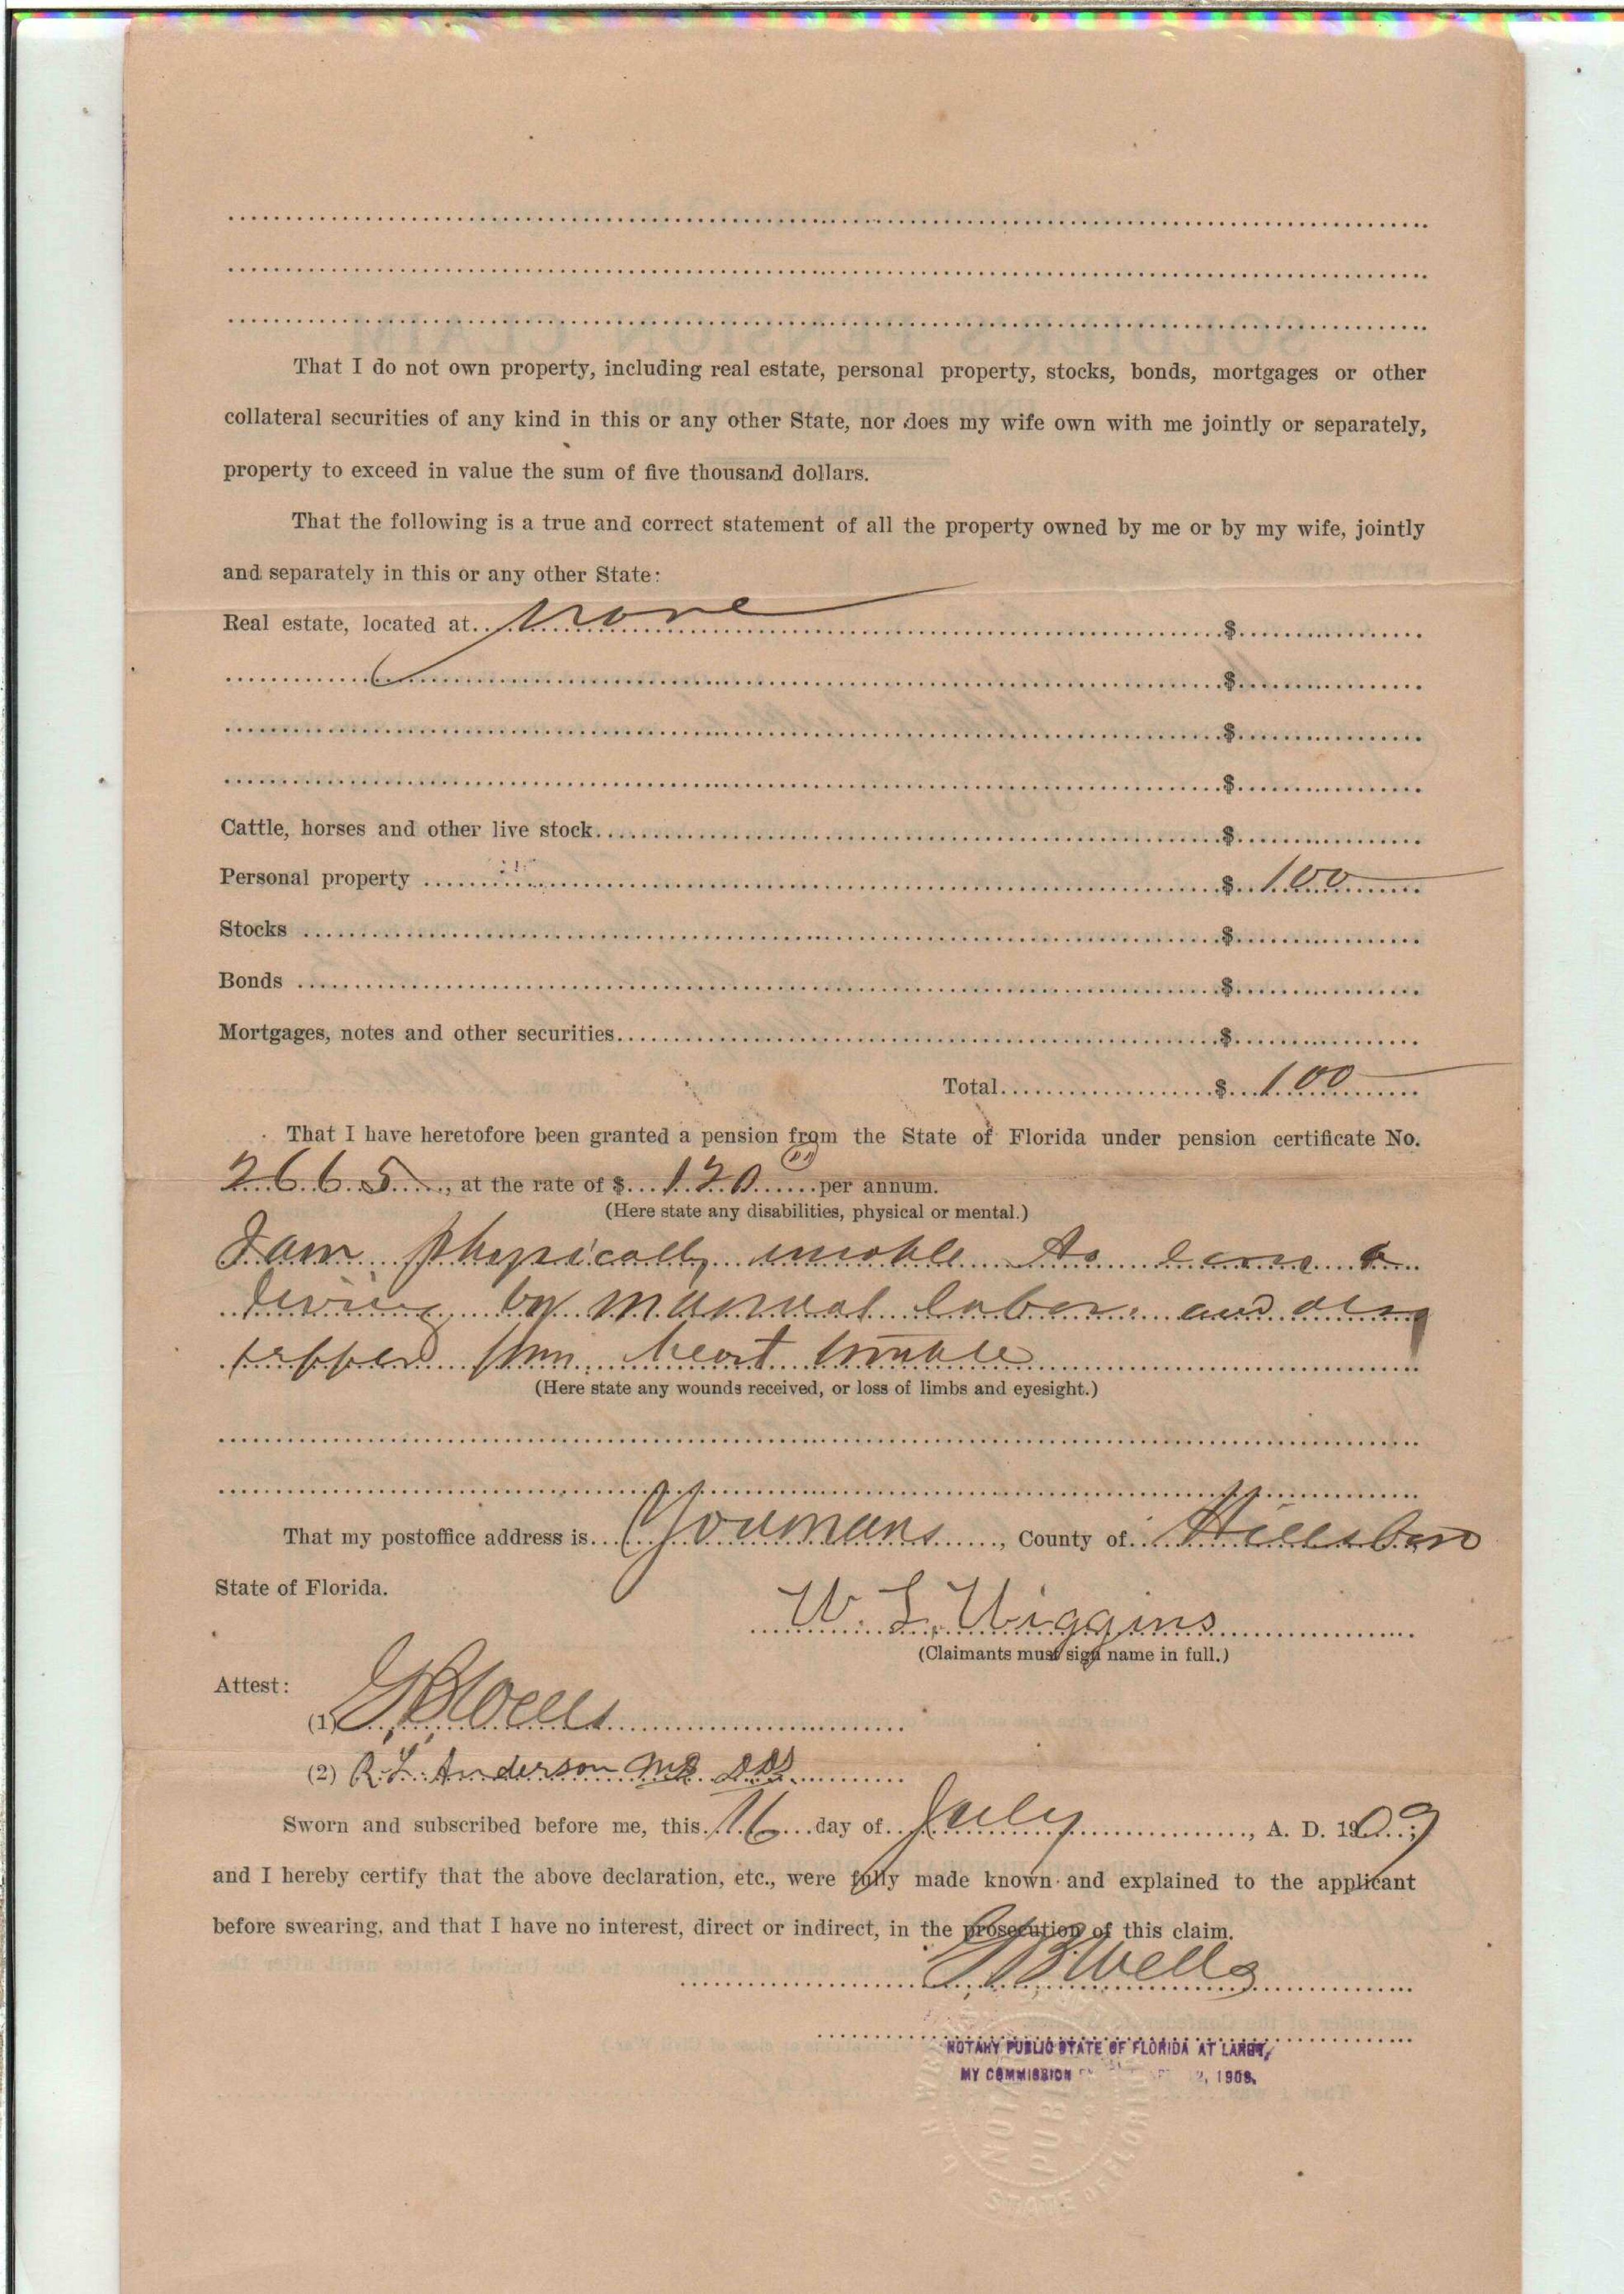 That I do not own property, including real estate, personal property, stocks, bonds, mortgages or other
collateral securities of any kind in this or any other State, nor does my wife own with me jointly or separately,
property to exceed in value the sum of five thousand dollars.
That the following is a true and correct statement of all the property owned by me or by my wife, jointly
and separately in this or any other State:
Real estate, located at none $
$
$
$
Cattle, horses and other live stock $
Personal property $ 100
Stocks $
Bonds $
Mortgages, notes and other securities $
Total $ 100
That I have heretofore been granted a pension from the State of Florida under pension certificate No.
2665, at the rate of $ 120 00 per annum.
(Here state any disabilities, physical or mental.)
I am physically unable to earn a
living by manual labor and also
suffer from heart trouble
(Here state any wounds received, or loss of limbs and eyesight.)
That my postoffice address is Youmans, County of Hillsboro
State of Florida.
W. L. Wiggins
(Claimants must sign name in full.)
Attest:
(1) G B Wells
(2) R. L. Anderson MD
Sworn and subscribed before me, this 16 day of July, A. D. 1909
and I hereby certify that the above declaration, etc., were fully made known and explained to the applicant
before swearing, and that I have no interest, direct or indirect, in the prosecution of this claim.
G B Wells
NOTARY PUBLIC STATE OF FLORIDA AT LARGE,
MY COMMISSION 1909.
NOTARY
PUBLIC
STATE OF FLORIDA